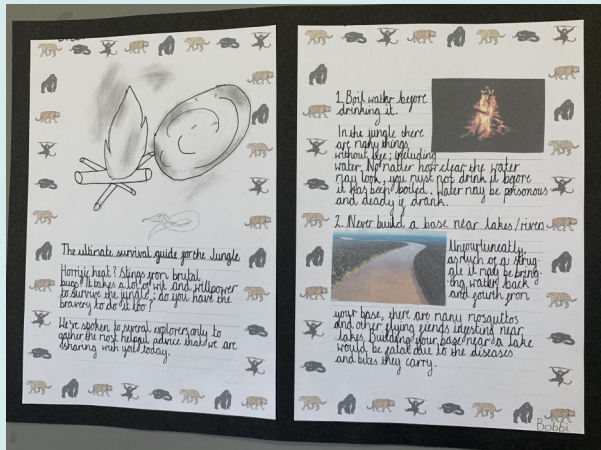 The ultimate survival guide for the Jungle
Horrific heat? Stings from brutal
bugs? It takes a lot of wit and willpower
to survive the jungle; do you have the
bravery to do it too?
We've spoken to several explorers only to
gather the most helpful advice that we are
sharing with you today.
1. Boil water before
drinking it.
In the jungle there
are many things
without life; including
water. No matter how clear the water
may look, you must not drink it before
it has been boiled. Water may be poisonous
and deadly if drank.
2. Never build a base near lakes/rivers
Unfortunately,
as much of a strug-
gle it may be bring-
ing water back
and fourth from
your base, there are many mosquitos
and other flying fiends infesting near
lakes. Building your base near a lake
would be fatal due to the diseases
and bites they carry.
Bobbi